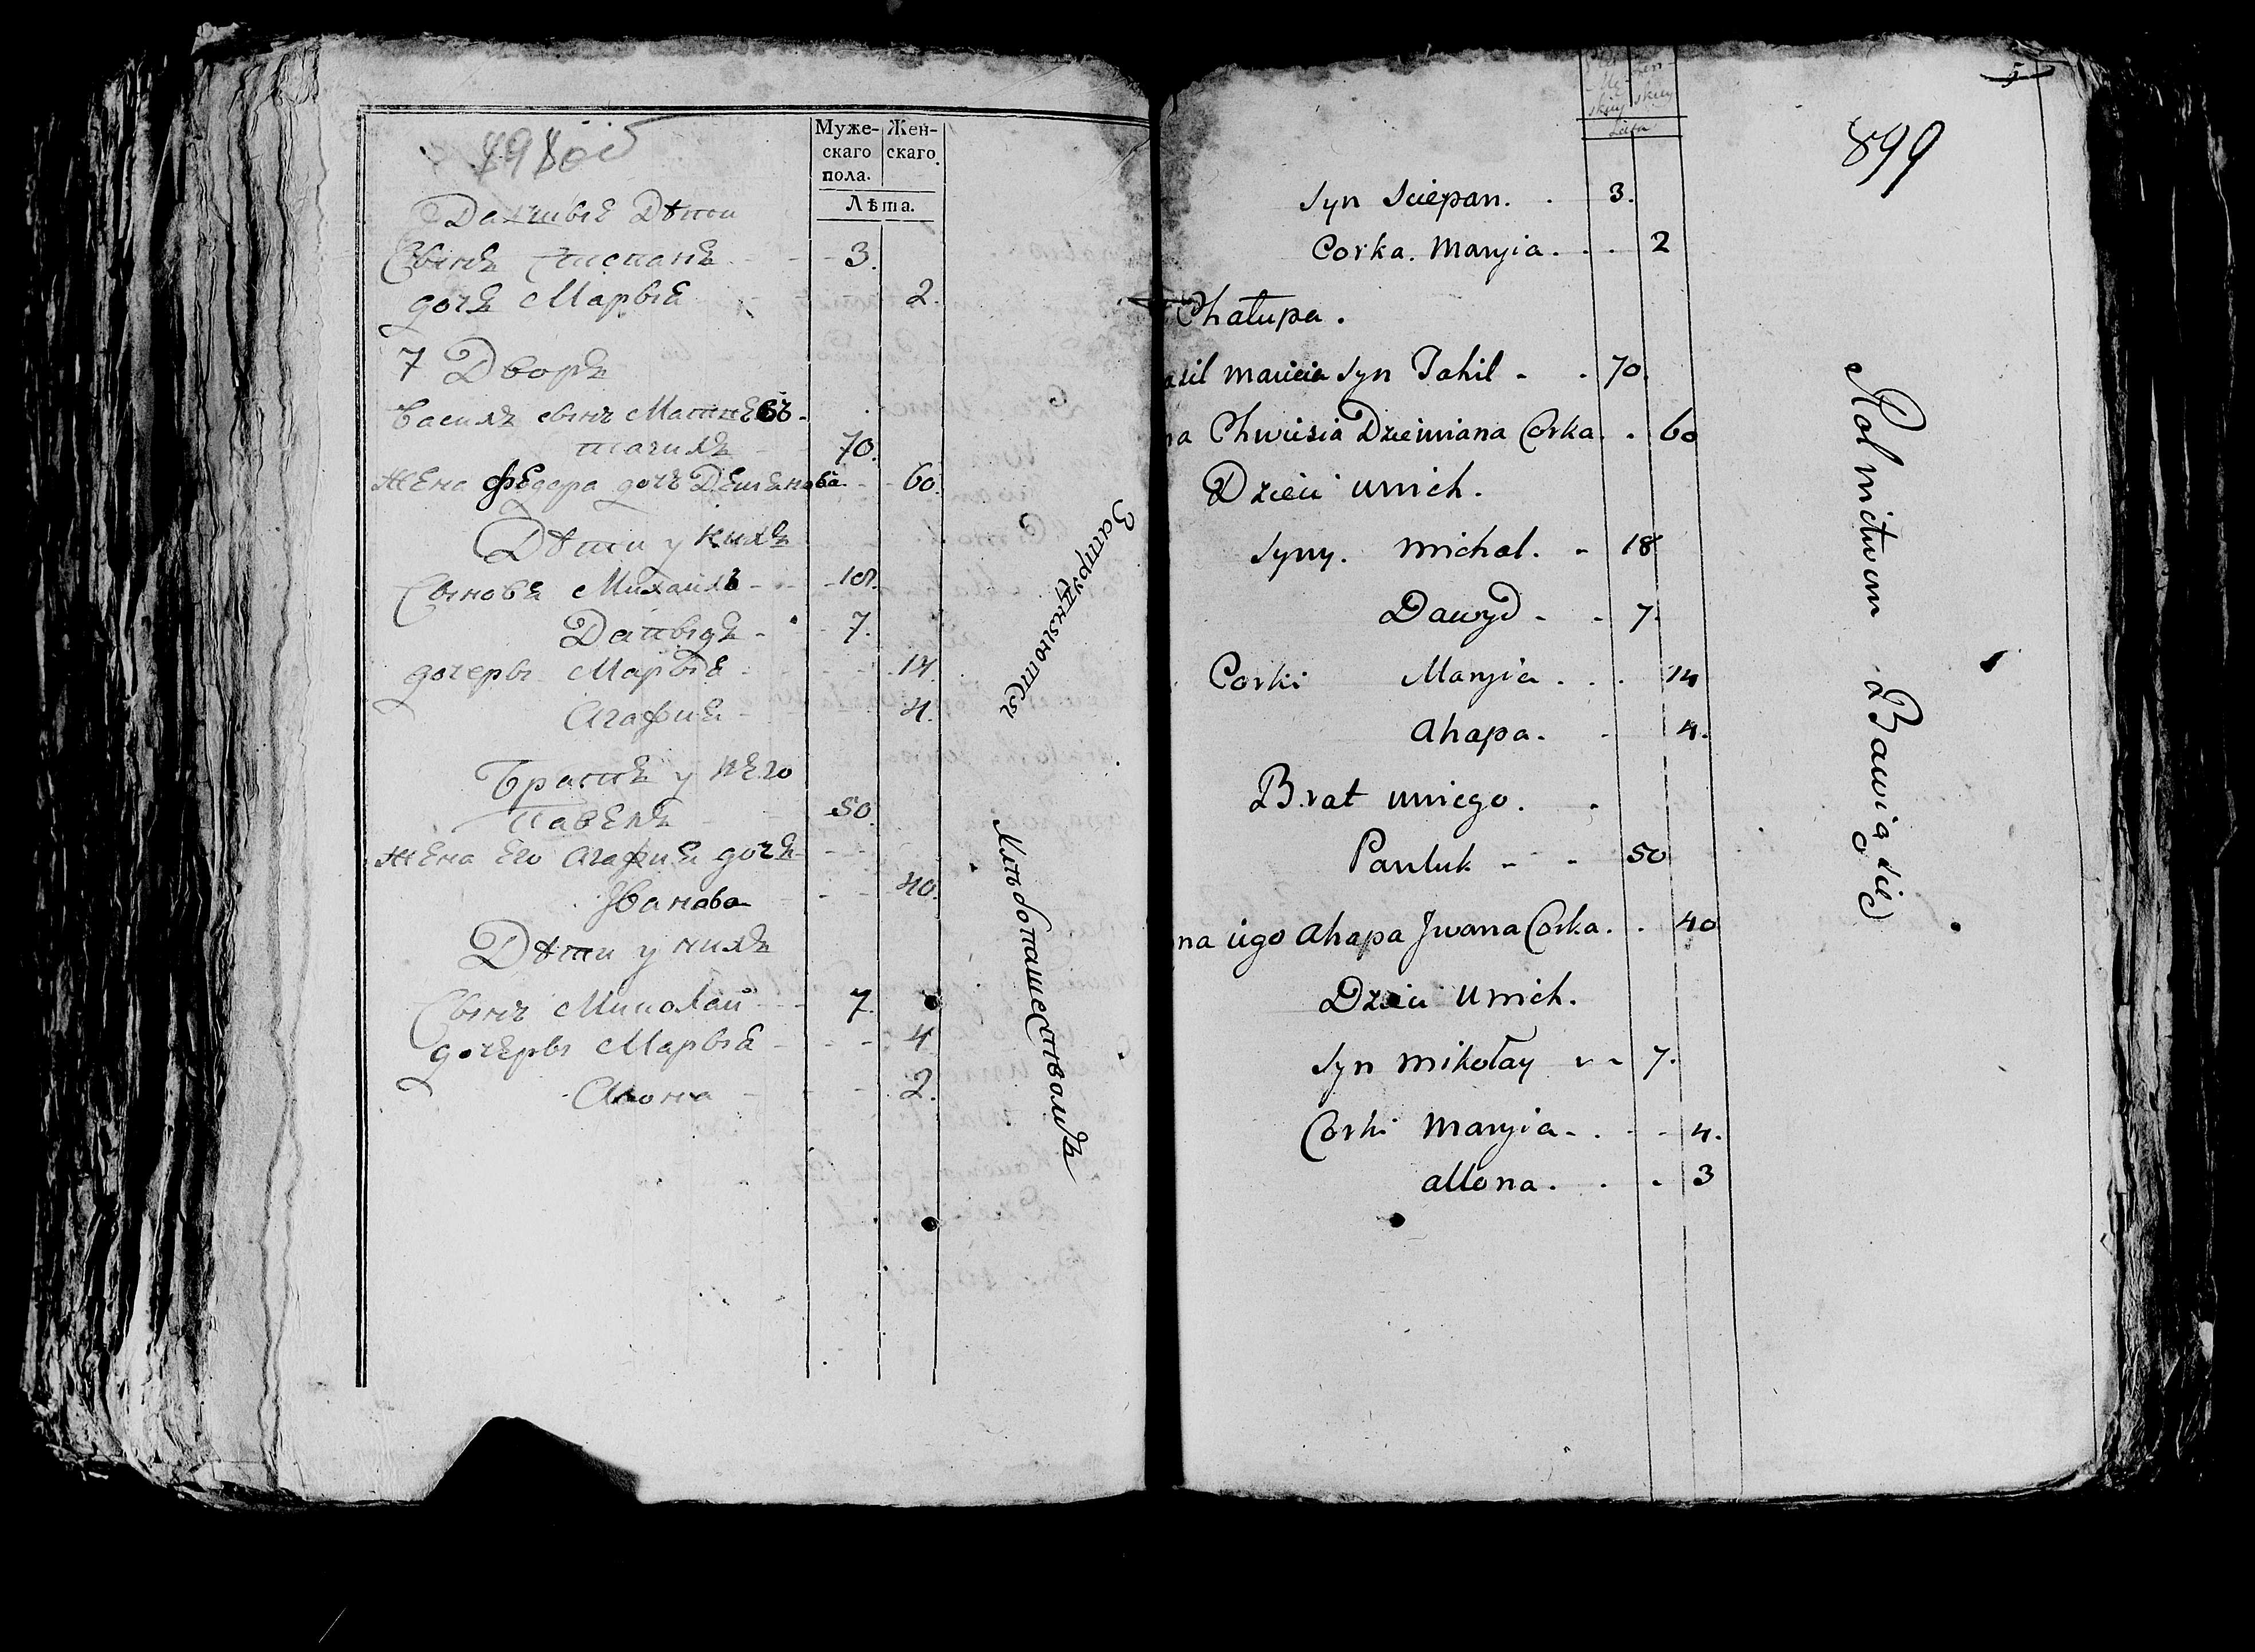 898 об
Муже-
скаго
пола.
Жен-
скаго
Лѣта.
Дѣти
Сынъ Стиепанъ 3.
дочъ Марыя 2.
7 Дворъ
Василъ сынъ Матвеевъ
70.
Жена Федора дочъ Деменова 60
Дѣти у нихъ
Сыновъ Михаилъ 18.
Давыдъ 7.
дочеры Марыя 14.
Агафия 4.
Братъ у него
Павелъ 50.
Жена его Агафия дочъ
Иванова 40.
Дѣти у нихъ
Сынъ Миколай 7.
дочеры Марыя 4
Алона 2.
Затрудняютсы
Хлѣбопашествомъ
5
899
Lata
Syn Sciepan. 3.
Corka. Maryia. 2
Chałupa.
syn Tahil 70.
na Chwiesia Dziemiana Corka. 60
Dzieci unich.
Syny. Michal. 18
Dawyd 7.
Corki Maryia 14
Ahapa. 4.
Brat uniego.
Pawluk 50
na iego Ahapa Jwana Corka. 40
Dzieci Unich.
Syn Mikołay 7.
Corki Maryia 4.
Allona. 3
Rolnictwem Bawią się